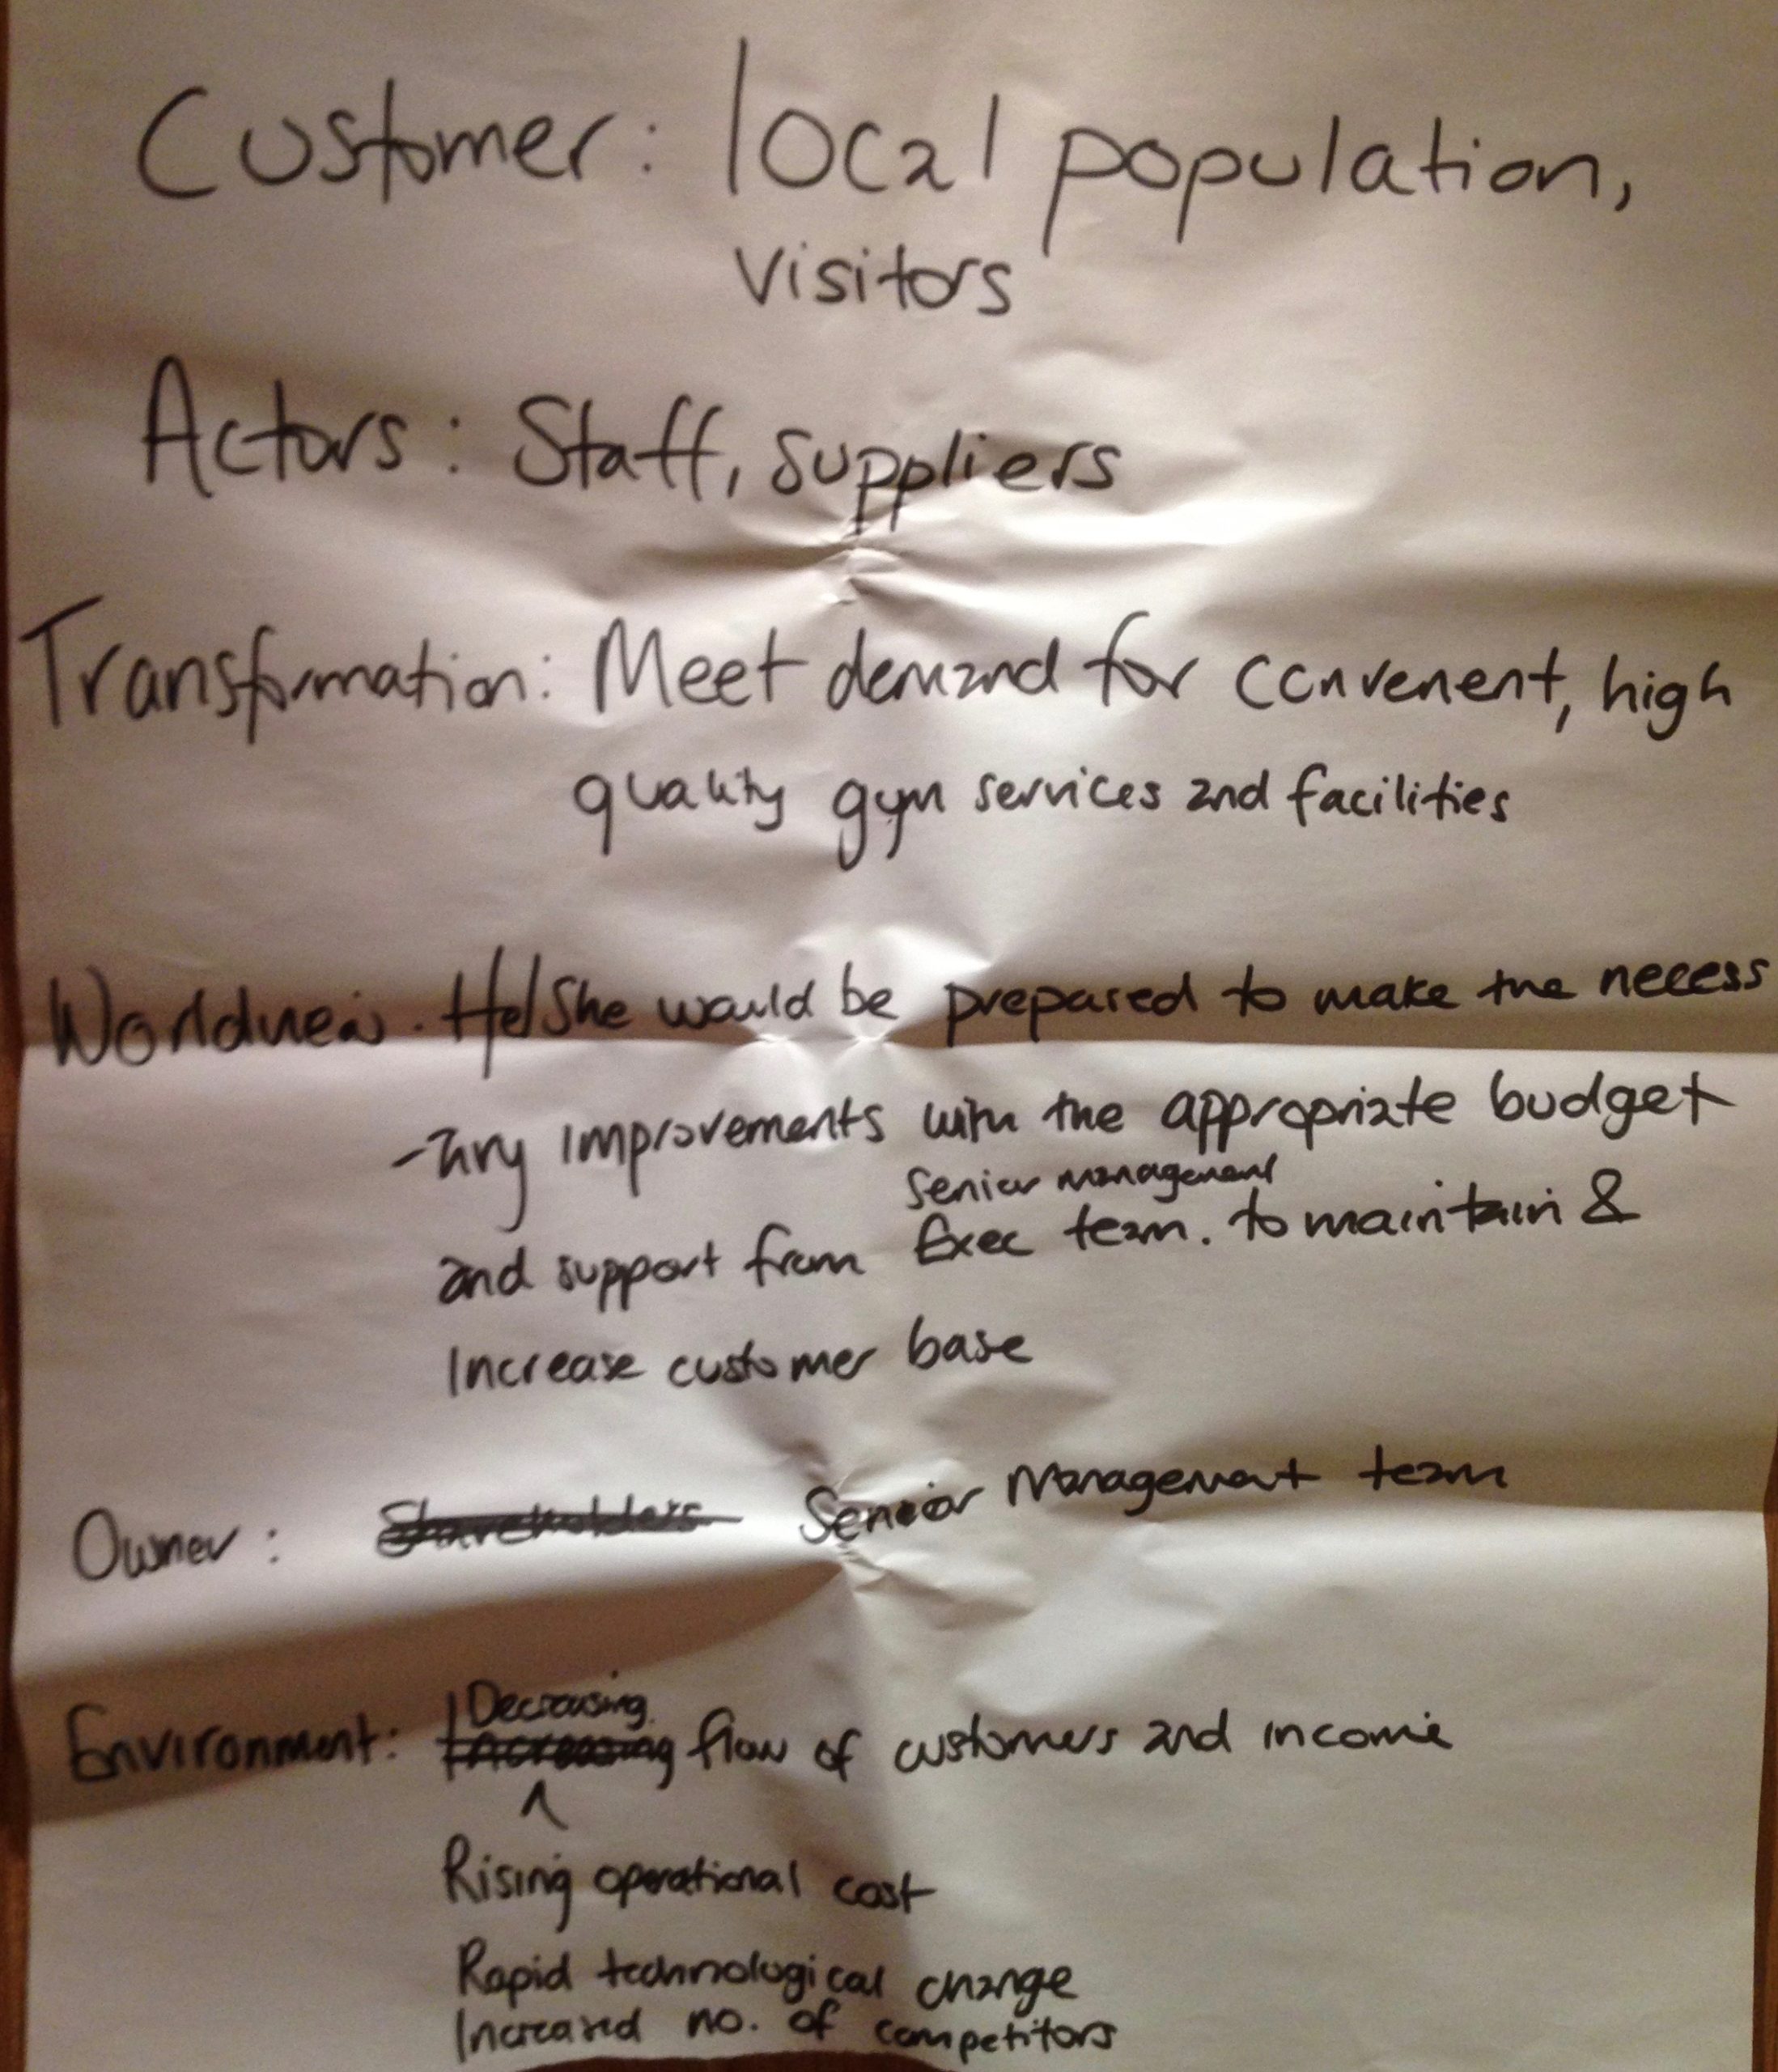 Customer: local population,
visitors
Actors: Staff, suppliers
Transformation: Meet demand for convenent, high
quality gym services and facilities
Worldview. He/She would be prepared to make the necess
-ary improvements with the appropriate budget
senior management
and support from Exec team. to maintain &
Increase customer base
Owner: Shareholders Senior Management team
Decreasing
Environment: Increasing flow of customers and income
^
Rising operational cost
Rapid technological change
Increased no. of competitors